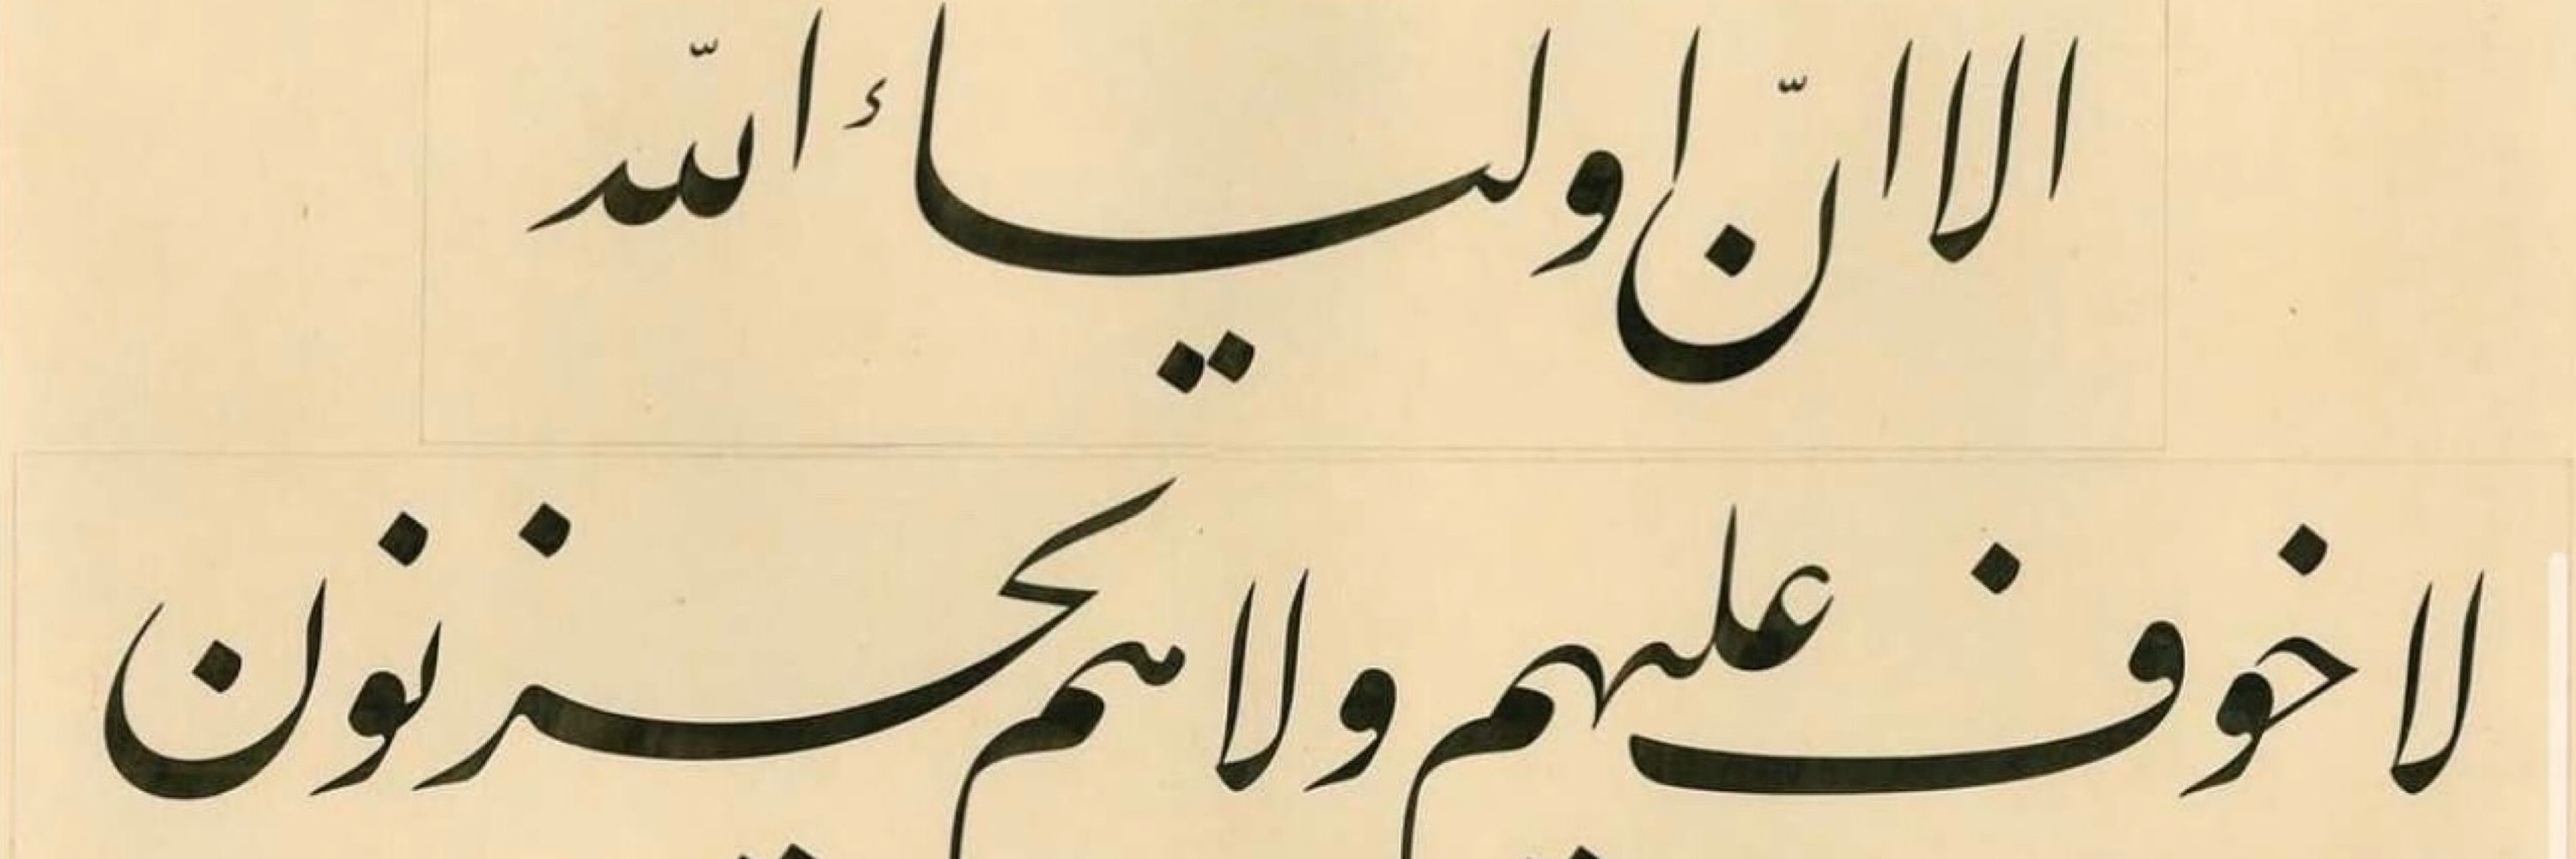 الا انّ اولياء اللّه
لا خوف عليهم ولا هم يحزنون